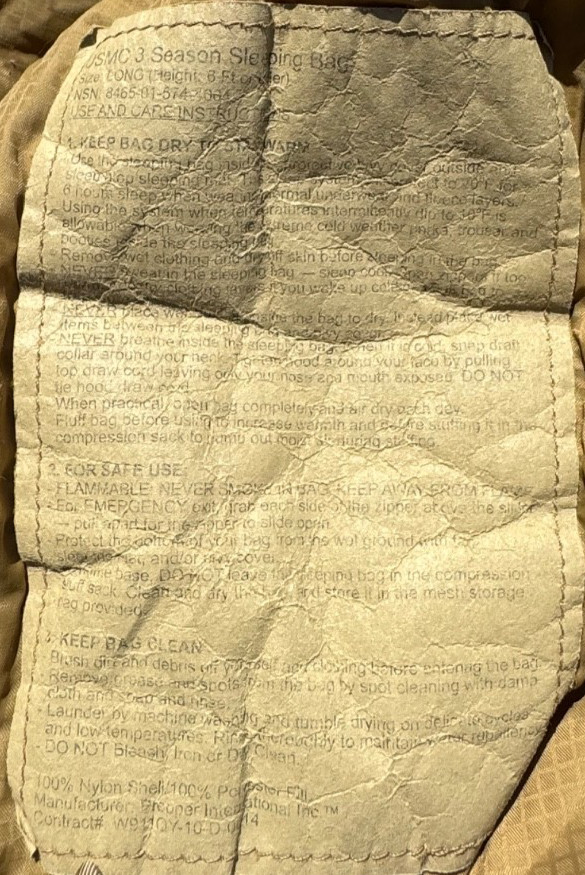 USMC 3 Season Sleeping Bag
Size: LONG (Height: 6 Ft or
NSN: 8465-01-574-
USE AND CARE INSTRUCTIONS
1. KEEP BAG DRY TO STAY WARM
- Use the sleeping bag inside
6 hours sleep when wearing thermal underwear and fleece layers.
Using the system when temperatures intermittently dip to 10°F is
allowable when wearing the extreme cold weather parka, trouser and
booties inside the sleeping bag.
- Remove wet clothing and dry off skin before sleeping in the bag.
- NEVER sweat in the sleeping bag — sleep cool. Open zipper if too
if you wake up cold
- NEVER place wet inside the bag to dry. Instead place wet
items between the sleeping
- NEVER breathe inside the sleeping bag. When it is cold, snap draft
collar around your neck. Tighten hood around your face by pulling
top draw cord leaving only your nose and mouth exposed. DO NOT
tie hood draw cord.
- When practical, open bag completely and air dry each day.
- Fluff bag before using to increase warmth and before stuffing it in the
compression sack to
2. FOR SAFE USE:
- FLAMMABLE: NEVER SMOKE IN BAG. KEEP AWAY FROM FLAME.
- For EMERGENCY exit, grab each side of the zipper above the slider
— pull apart for the zipper to slide open.
- Protect the bottom of your bag from the wet ground with
sleeping mat and/or bivy cover.
base, DO NOT leave the sleeping bag in the compression
stuff sack. Clean and dry the bag and store it in the mesh storage
bag provided.
3. KEEP BAG CLEAN
- Brush dirt and debris off yourself and clothing before entering the bag.
- Remove grease and spots from the bag by spot cleaning with damp
cloth and soap and rinse.
- Launder by machine washing and tumble drying on delicate cycles
and low temperatures. Rinse thoroughly to maintain water repellency.
- DO NOT Bleach, Iron or Dry Clean.
100% Nylon Shell/100% Polyester Fill
Manufacturer: Propper International Inc.™
Contract#: W911QY-10-D-0014